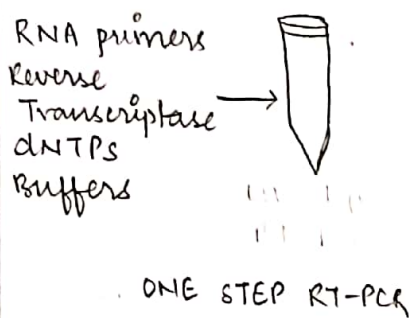 RNA primers
Reverse
Transcriptase
dNTPs
Buffers
ONE STEP RT-PCR